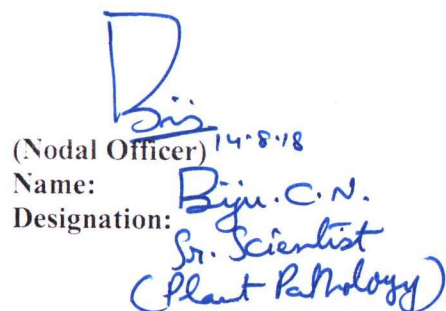 (Nodal Officer) 14.8.18
Name: Biju. C. N.
Designation: Sr. Scientist
(Plant Pathology)